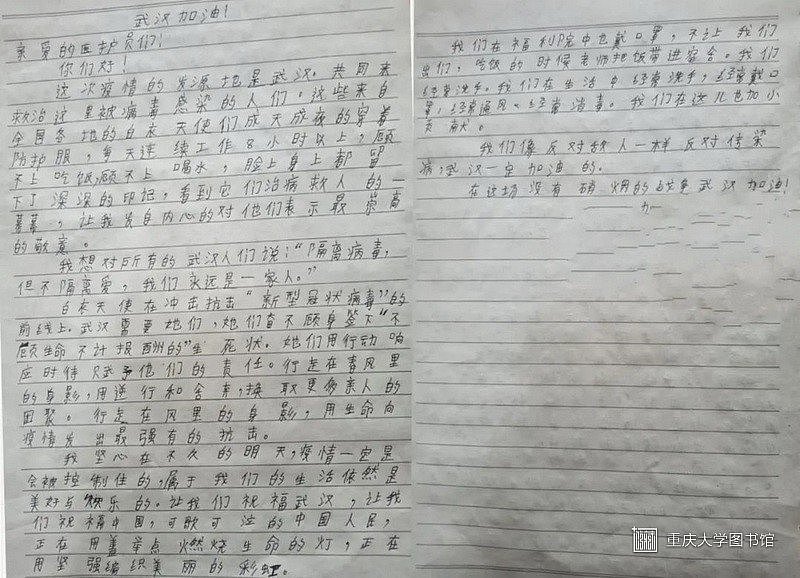 武汉加油！
亲爱的医护员们！
你们好！
这次疫情的发源地是武汉。共同来
救治这里被病毒感染的人们。这些来自
全国各地的白衣天使们成天成夜的穿着
防护服，每天连续工作8小时以上，顾
不上吃饭顾不上喝水，脸上身上都留
下了深深的印记，看到它们治病救人的一
幕幕，让我发自内心的对他们表示最崇高
的敬意。
我想对所有的武汉人们说："隔离病毒，
但不隔离爱，我们永远是一家人。"
白衣天使在冲击抗击"新型冠状病毒"的
前线上。武汉需要她们，她们奋不顾身签下"不
顾生命不计报酬的"生死状。她们用行动响
应时待赋予他们的责任。行走在春风里
的身影，用逆行和舍弃，换取更多亲人的
团聚。行走在风里的身影，用生命向
疫情发出最强有的抗击。
我坚心在不久的明天，疫情一定是
会被控制住的，属于我们的生活依然是
美好与快乐的。让我们祝福武汉，让我
们祝福中国，可歌可泣的中国人民，
正在用盖举点火燃烧生命的灯，正在
用坚强编织美丽的彩虹。
我们在福利院中也戴口罩，不让我们
出们，吃饭的时候老师把饭带进宿舍。我们
经常洗手。我们在生活中经常洗手，经常戴口
罩，经常通风。经常消毒。我们在这儿也加小
贡献。
我们像反对敌人一样反对传染
病，武汉一定加油的。
在这场没有硝烟的战争武汉加油！
重庆大学图书馆